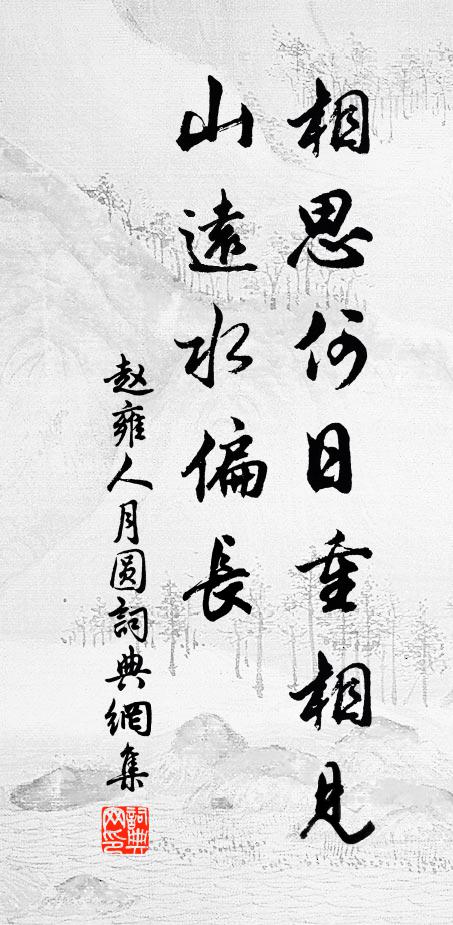 相思何日重相見
山遠水偏長
赵雍人月圆詞典網集
詞典网印